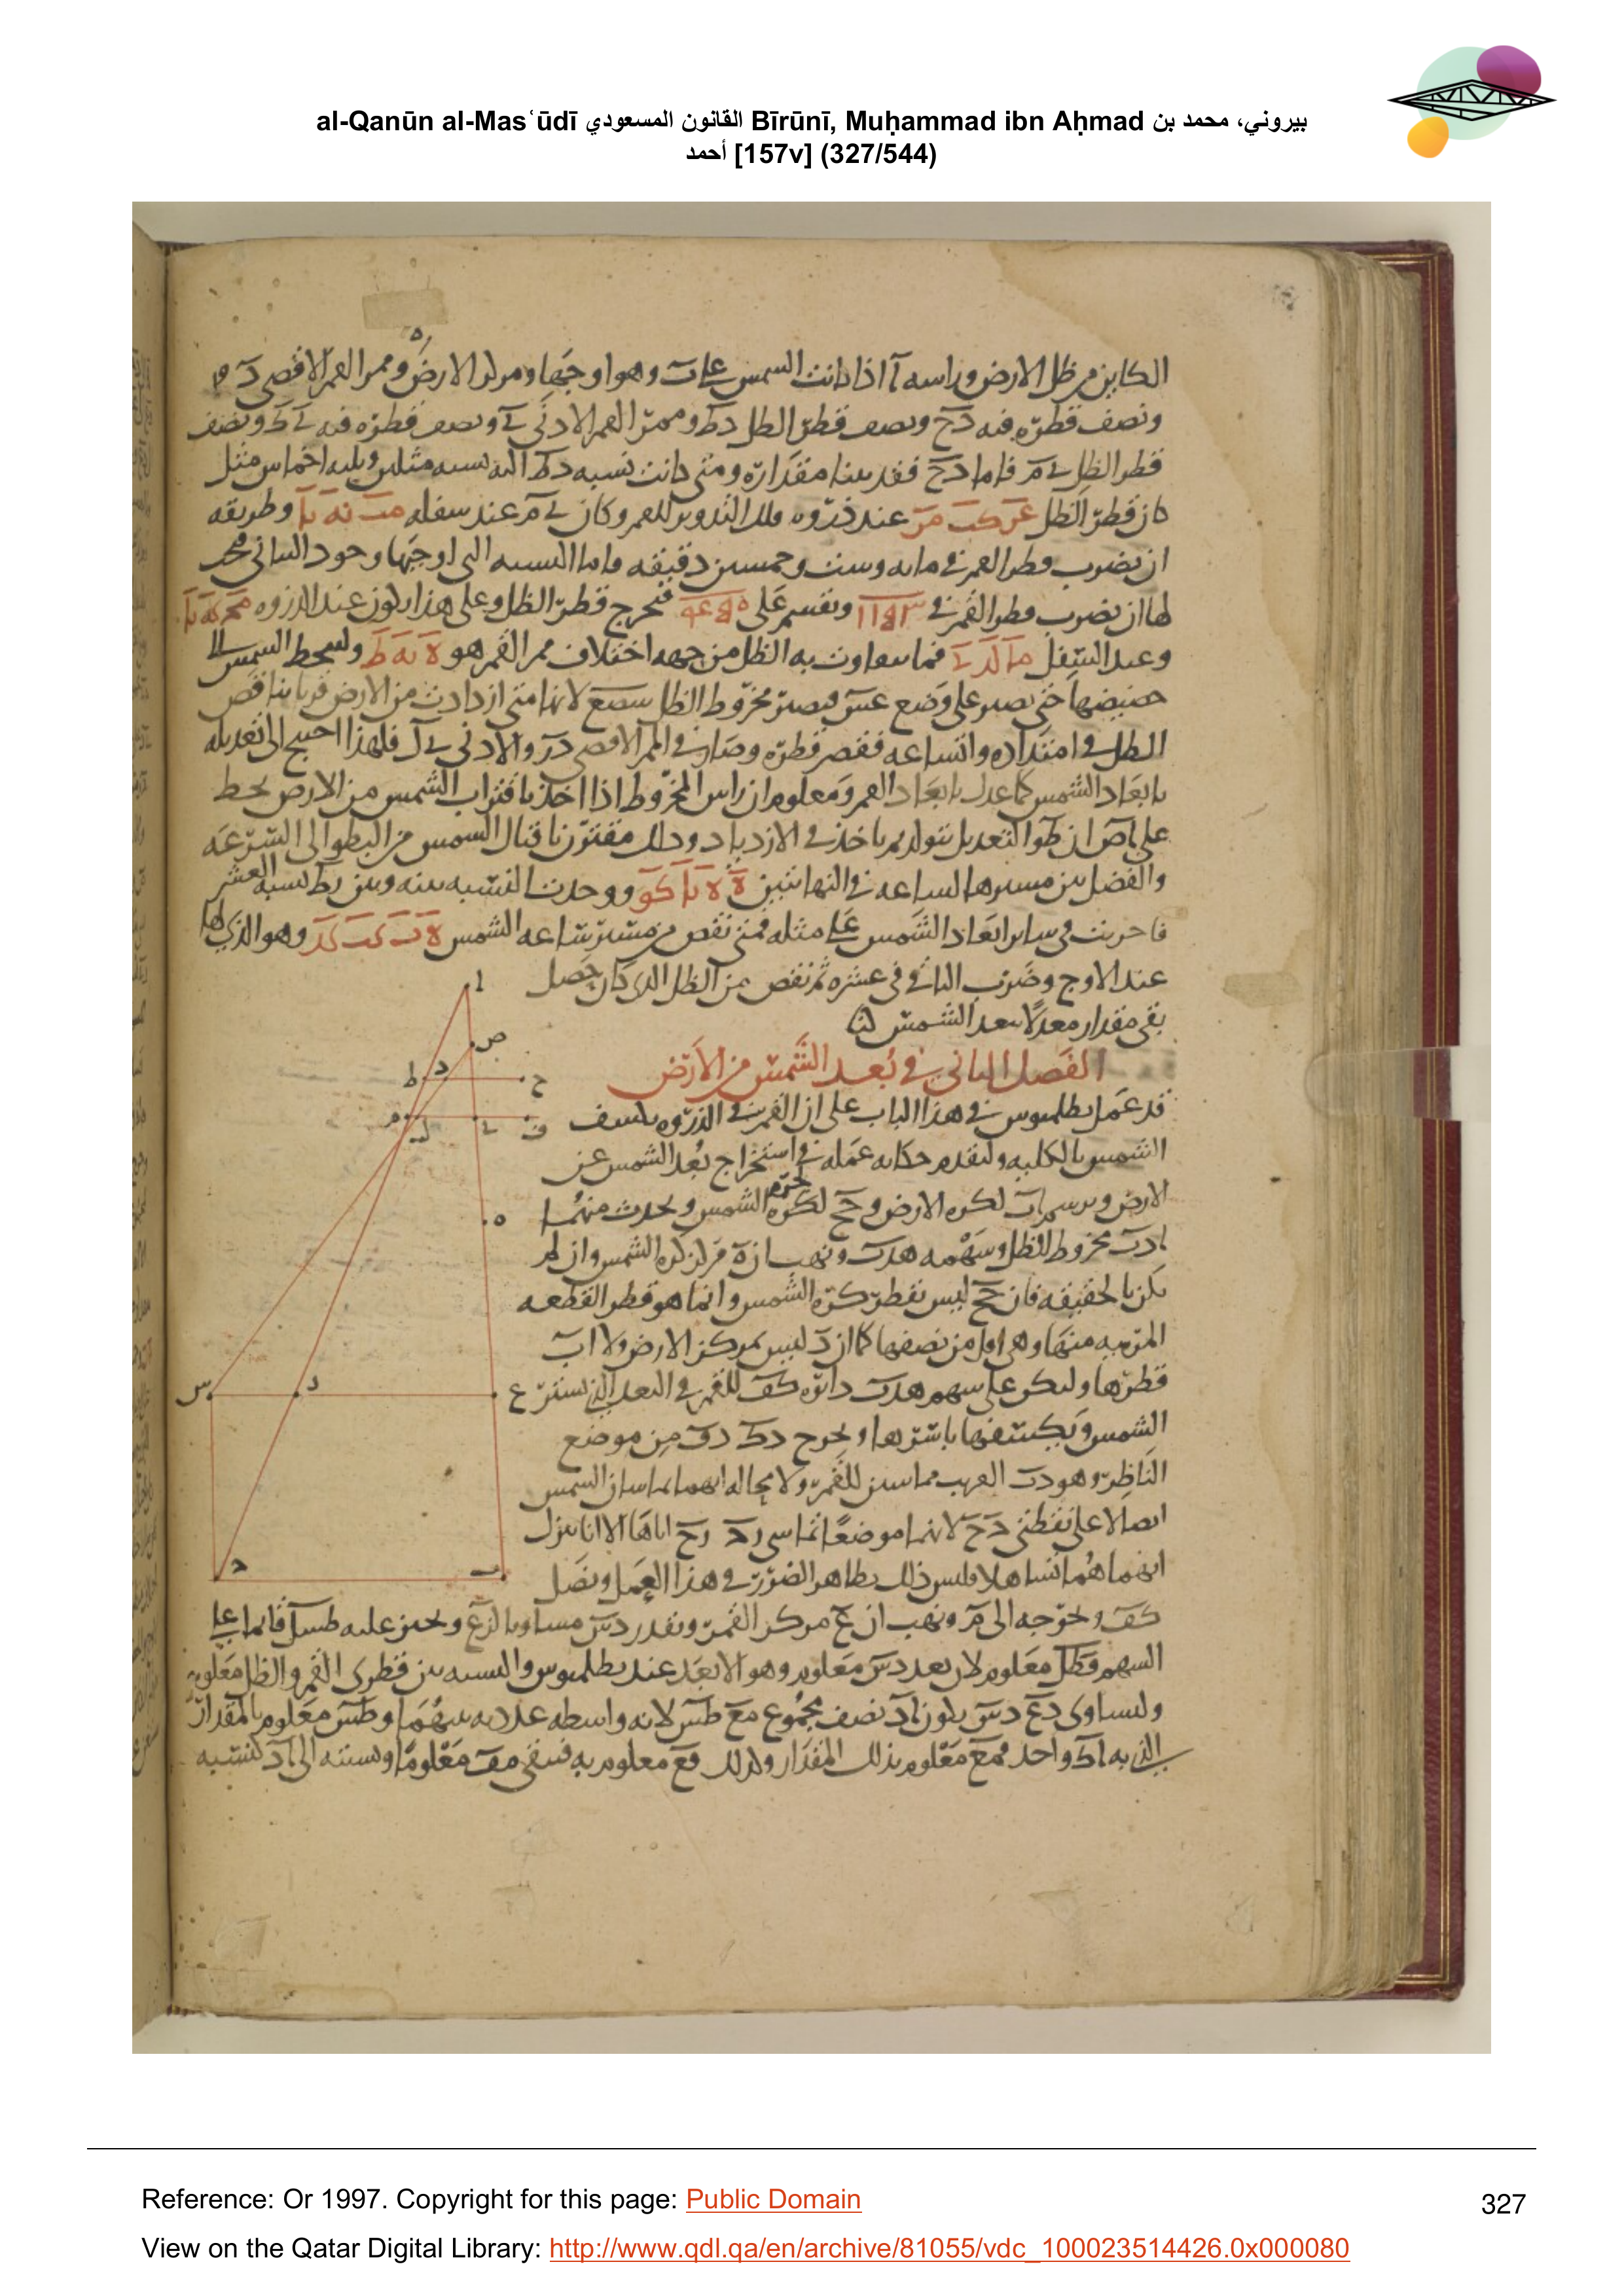 al-Qanūn al-Mas‘ūdī القانون المسعودي Bīrūnī, Muḥammad ibn Aḥmad بيروني، محمد بن
أحمد [157v] (327/544)
الكاين من ظل الارض وراسه آ اذا كانت الشمس على ب وهو اوجها ومركز الارض وممر القمر الاقصى
ونصف قطره فيه دح ونصف قطر الظل دط وممر القمر الادنى ونصف قطره فيه ونصف
قطر الظل فاما دح فقد بينا مقداره ومتى كانت نسبة دط اليه نسبة مثلين وثلثة اخماس مثل
كان قطر الظل عند ذروة فلك التدوير للقمر وكان عند سفله وطريقه
ان يضرب قطر القمر في مايه وست وخمسين دقيقه واما النسبه التي اوجبها وجود البتاني
لها ان يضرب قطر القمر في ونقسم على فيخرج قطر الظل وعلى هذا يكون عند الذروه
وعند السفل فما يتفاوت به الظل من جهه اختلاف ممر القمر هو ولينحط الشمس الى
حضيضها حتى يصير على وضع ويصير مخروط الظل لانها متى ازدادت من الارض قربا تناقص
الظل في امتداده واتساعه فقصر قطره وصار في الممر الاقصى والادنى فلهذا احتيج الى تعديله
بابعاد الشمس كما عدل بابعاد القمر ومعلوم ان راس المخروط اذا اخذ باقتراب الشمس من الارض ينحط
على ان التعديل يتولد ثم ياخذ في الازدياد وذلك مقترن باقبال الشمس من البطو الى السرعه
والفضل بين مسيرها لساعه في النهايتين ووجدت النسبه بينه وبين نسبة العشر
فاجريت في ساير ابعاد الشمس على مثله فمتى نقص من مسير ساعه الشمس وهو الذي لها
عند الاوج وضرب الباقي في عشره ثم نقص من الظل الذي كان حصل
بقي مقداره معدلا ببعد الشمس
الفصل الثاني في بعد الشمس من الارض
قد عمل بطلميوس في هذا الباب على ان القمر في الذروه يكسف
الشمس بالكليه ولنقدم حكايه عمله في استخراج بعد الشمس عن
الارض ونرسم اب لكره الارض و لكره الشمس ويحدث منهما
مخروط الظل وسهمه ونهب ان ه مركز كره الشمس وان لم
يكن بالحقيقه فان ليس بقطر كره الشمس وانما هو قطر القطعه
المرئيه منها وهي اقل من نصفها كما ان د ليس بمركز الارض ولا اب
قطرها وليكن على سهم دايره كف للقمر في البعد الذي يستر
الشمس ويكسفها باسرها ويخرج من موضع
الناظر وهو مماسين للقمر ولا محاله انهما يماسان الشمس
لا على نقطتي لانهما موضعا تماسي اياها الا انا ننزل
انهما هما تساهلا فليس ذلك بظاهر الضرر في هذا العمل ونصل
كف ونخرجه الى م ونهب ان ع مركز القمر ونقدر دس مساويا لدع ونجيز عليه طسل قايما على
السهم فطل معلوم لان بعد دس معلوم وهو الابعد عند بطلميوس والنسبه بين قطري القمر والظل معلومه
ولتساوي دع دس يكون اد نصف مجموع مع طس لانه واسطه عدديه بينهما وطس معلوم بالمقدار
الذي به اد واحد فمع معلوم بذلك المقدار وكذلك فع معلوم به فيبقى مف معلوما ونسبته الى اد كنسبه
ا
ص
ط
د
ح
م
ك
ف
ه
س
د
ع
ب
Reference: Or 1997. Copyright for this page: Public Domain
327
View on the Qatar Digital Library: http://www.qdl.qa/en/archive/81055/vdc_100023514426.0x000080